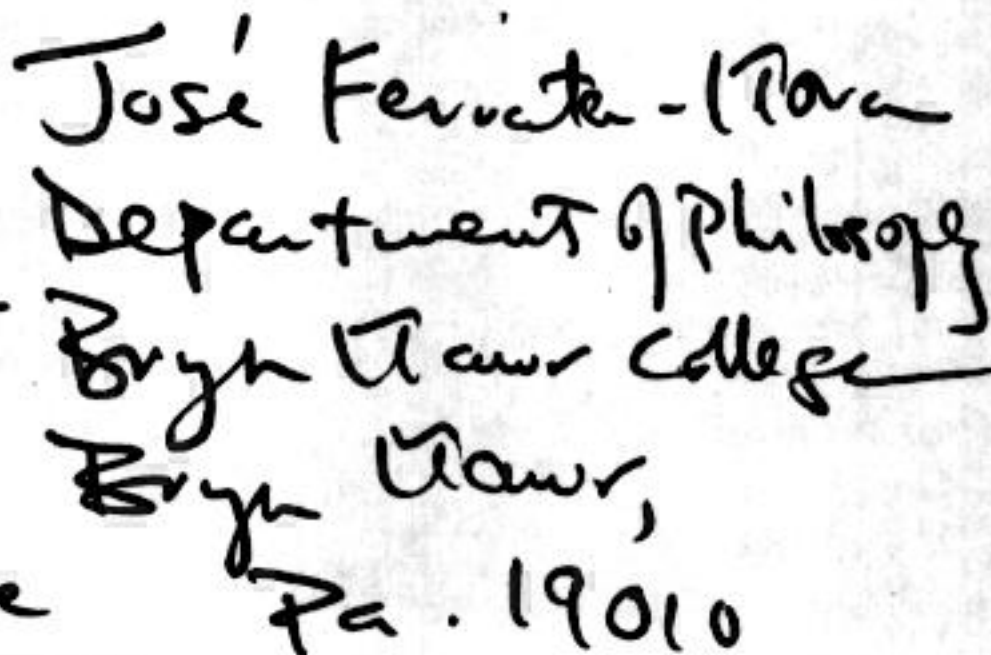 José Ferrater-Mora
Department of Philosophy
Bryn Mawr College
Bryn Mawr,
Pa. 19010